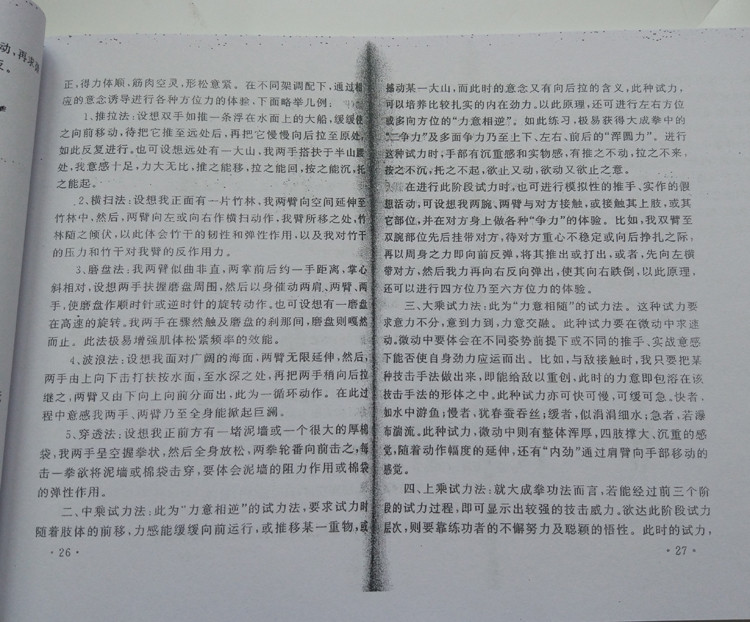 动、再求
反。
正,得力体顺,筋肉空灵,形松意紧。在不同架调配下,通过相
应的意念诱导进行各种方位力的体验,下面略举几例:
1、推拉法:设想双手如推一条浮在水面上的大船,缓缓使
之向前移动,待把它推至远处后,再把它慢慢向后拉至原处,
如此反复进行。也可设想远处有一大山,我两手搭扶于半山腰
处,我意感十足,力大无比,推之能移,拉之能回,按之能沉,托
之能起。
2、横扫法:设想我正面有一片竹林,我两臂向空间延伸至
竹林中,然后,两臂向左或向右作横扫动作,我臂所移之处,竹
林随之倾伏,以此体会竹干的韧性和弹性作用,以及我对竹干
的压力和竹干对我臂的反作用力。
3、磨盘法:我两臂似曲非直,两掌前后约一手距离,掌心
斜相对,设想两手扶握磨盘周围,然后以身催动两肩、两臂、两
手,使磨盘作顺时针或逆时针的旋转动作。也可设想有一磨盘
在高速的旋转。我两手在骤然触及磨盘的刹那间,磨盘则嘎然
而止。此法极易增强肌体松紧频率的效能。
4、波浪法:设想我面对广阔的海面,两臂无限延伸,然后,
两手由上向下击打扶按水面,至水深之处,再把两手稍向后拉
继之,两臂又由下向上向前分而出,此为一循环动作。在此过
程中意感我两手、两臂乃至全身能掀起巨澜。
5、穿透法:设想我正前方有一堵泥墙或一个很大的厚棉
袋,我两手呈空握拳状,然后全身放松,两拳轮番向前击之,每
击一拳欲将泥墙或棉袋击穿,要体会泥墙的阻力作用或棉袋
的弹性作用。
二、中乘试力法:此为“力意相逆”的试力法,要求试力时
随着肢体的前移,力感能缓缓向前运行,或推移某一重物,或
·26·
撼动某一大山,而此时的意念又有向后拉的含义,此种试力,
可以培养比较扎实的内在劲力。以此原理,还可进行左右方位
或多向方位的“力意相逆”。如此练习,极易获得大成拳中的
“二争力”及多面争力乃至上下、左右、前后的“浑圆力”。进行
这种试力时,手部有沉重感和实物感,有推之不动,拉之不来,
按之不沉,托之不起,欲止又动,欲动又欲止之意。
在进行此阶段试力时,也可进行模拟性的推手、实作的假
想活动,可设想我两腕、两臂与对方接触,或接触其上肢,或其
它部位,并在对方身上做各种“争力”的体验。比如,我双臂至
双腕部位先后挂带对方,待对方重心不稳定或向后挣扎之际,
再以周身之力即向前反弹,将其推出或打出,或者,先向左横
带对方,然后我力再向右反向弹出,使其向右跌倒,以此原理,
还可以进行四方位乃至六方位力的体验。
三、大乘试力法:此为“力意相随”的试力法。这种试力要
求意力不分,意到力到,力意交融。此种试力要在微动中求迷
动。微动中要体会在不同姿势前提下或不同的推手、实战意感
下能否使自身劲力应运而出。比如,与敌接触时,我只要把某
种技击手法做出来,即能给敌以重创,此时的力意即包溶在该
技击手法的形体之中。此种试力亦可快可慢,可缓可急。快者、
如水中游鱼;慢者,犹春蚕吞丝;缓者,似涓涓细水;急者,若瀑
布湍流。此种试力,微动中则有整体浑厚,四肢撑大、沉重的感
觉,随着动作幅度的延伸,还有“内劲”通过肩臂向手部移动的
感觉。
四、上乘试力法:就大成拳功法而言,若能经过前三个阶
段的试力过程,即可显示出较强的技击威力。欲达此阶段试力
层次,则要靠练功者的不懈努力及聪颖的悟性。此时的试力,
·27·